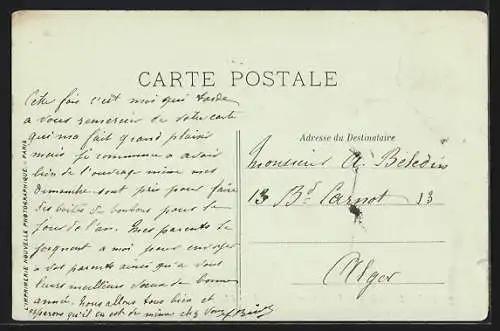 CARTE POSTALE
Cette fois c'est moi qui tarde
a vous remercier de votre carte
qui m'a fait grand plaisir
mais je commence a avoir
bien de l'ouvrage même mes
dimanches sont pris pour faire
des boites de bonbons pour le
jour de l'an. Mes parents se
joignent a moi pour envoyer
a vos parents ainsi qu'a vous
leurs meilleurs vœux de bonne
année. Nous allons tous bien et
esperons qu'il en est de même chez vous
Adresse du Destinataire
Monsieur A.
13 Bd Carnot 13
Alger
L'IMPRIMERIE NOUVELLE PHOTOGRAPHIQUE - PARIS